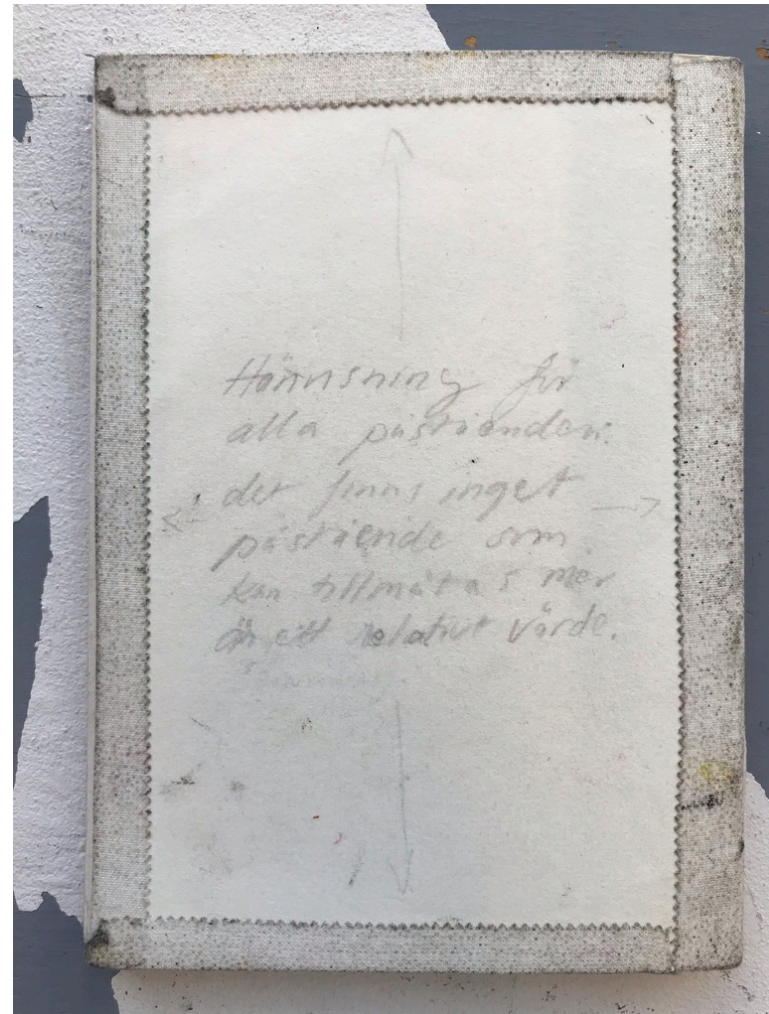 Hänvisning för
alla påståenden:
det finns inget
påstående som
kan tillmätas mer
än ett relativt värde.